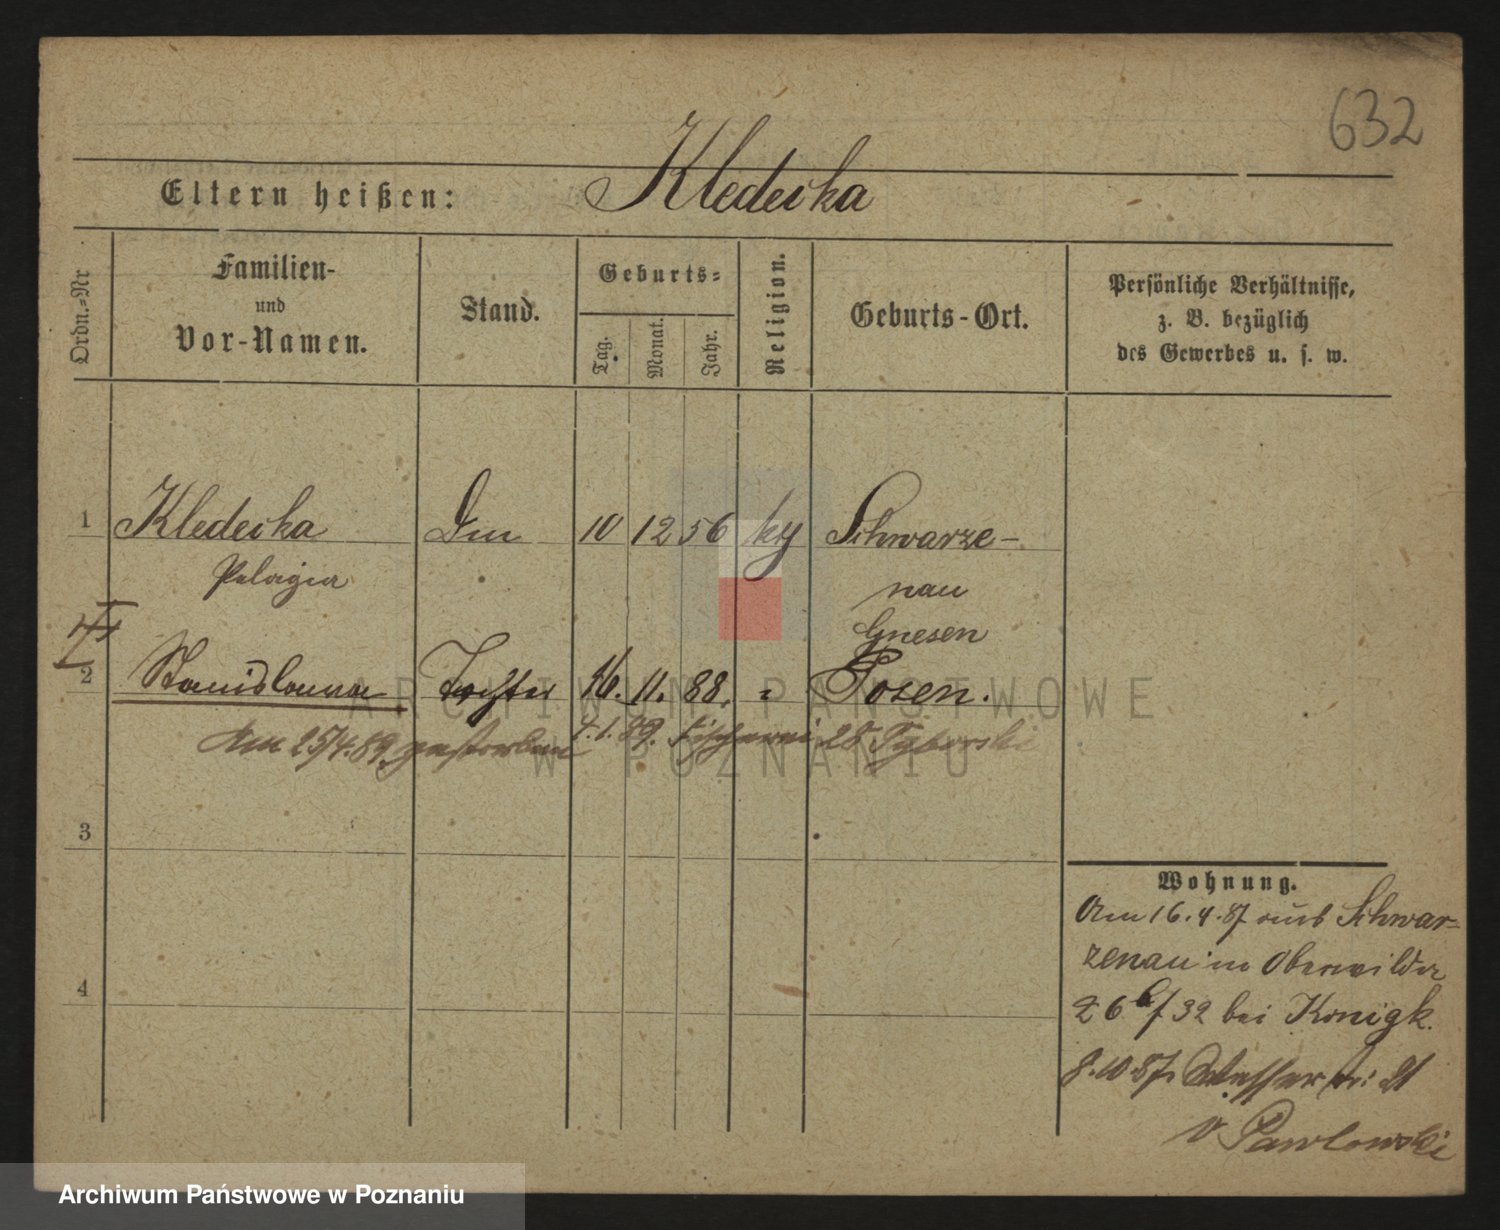 632
Eltern heißen: Kledecka
Ordn.-Nr
Familien-
und
Vor-Namen.
Stand.
Geburts-
Tag.
Monat.
Jahr.
Religion.
Geburts-Ort.
Persönliche Verhältnisse,
z. B. bezüglich
des Gewerbes u. s. w.
1 Kledecka 10 12 56 Schwarze-
Pelagia nau
Gnesen
2 Stanislawa Tochter 16. 11. 88. " Posen.
4.1.89. Fischerei 28 Tyborski
Am 25/4.89. gestorben
3
4
Wohnung.
Am 16.4.87 aus Schwar-
zenau in Oberwilda
26 b/32 bei Konigk.
8.10.87. Wasserstr. 21
v Pawlowski
ARCHIWUM PAŃSTWOWE
W POZNANIU
Archiwum Państwowe w Poznaniu